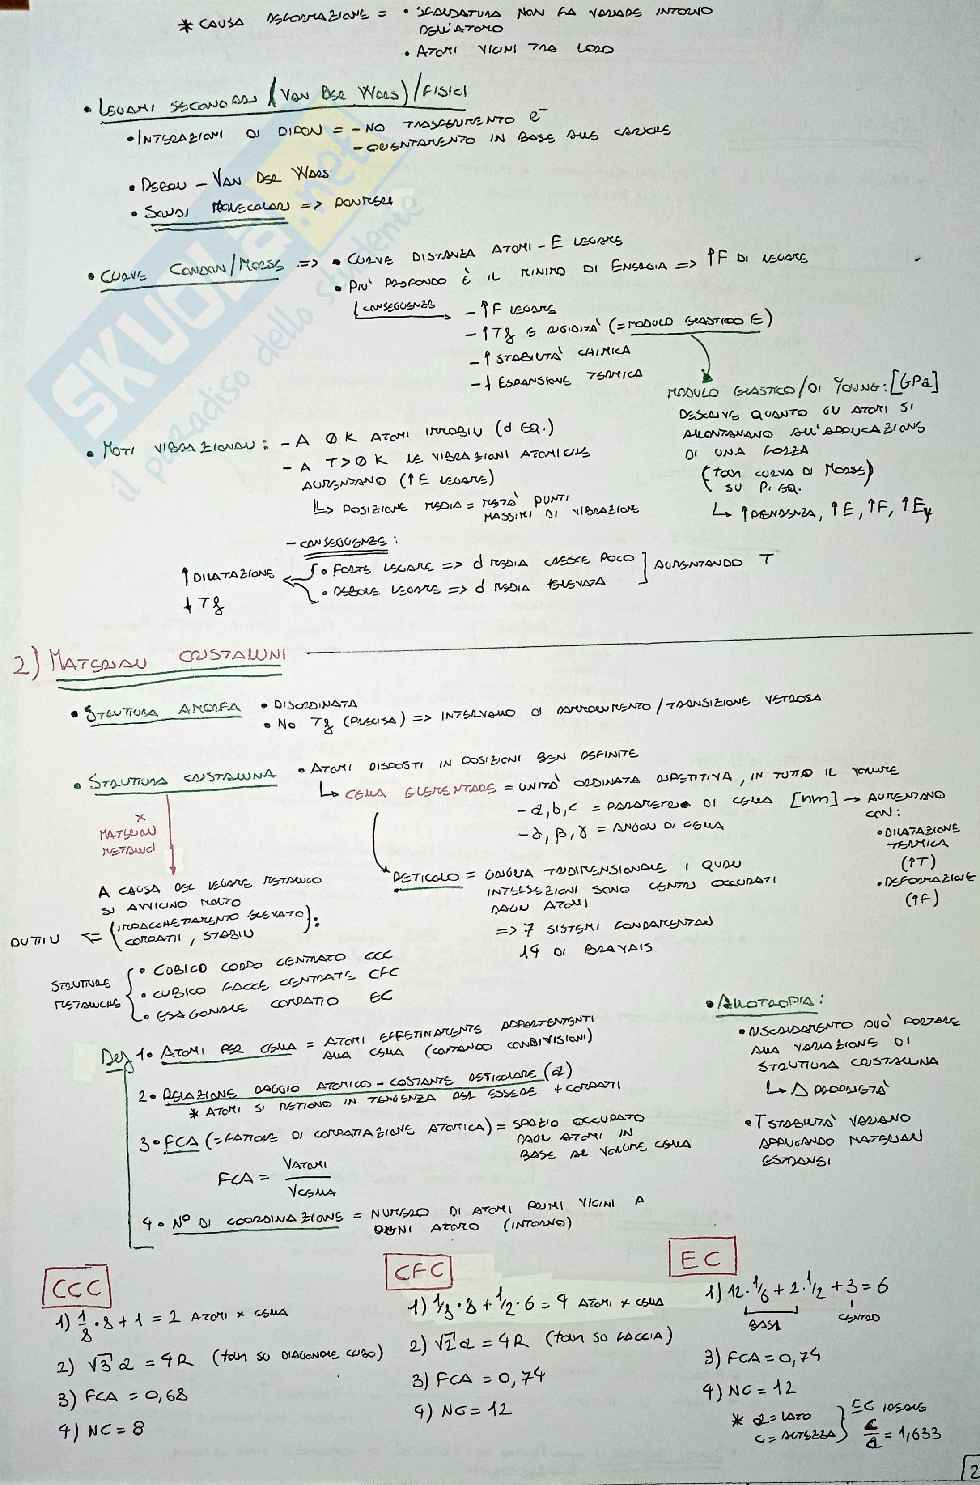 * CAUSA DEFORMAZIONE = • SFALDATURA NON FA VARIARE INTORNO
DELL'ATOMO
• ATOMI VICINI TRA LORO
• LEGAMI SECONDARI (VAN DER WAALS)/FISICI
• INTERAZIONI DI DIPOLI = - NO TRASFERIMENTO e⁻
- ORIENTAMENTO IN BASE ALLE CARICHE
• DEBOLI - VAN DER WAALS
• SOLIDI MOLECOLARI => POLIMERI
• CURVE CONDON/MORSE => • CURVE DISTANZA ATOMI - E LEGAME
• PIU' PROFONDO È IL MINIMO DI ENERGIA => ↑F DI LEGAME
CONSEGUENZE
- ↑F LEGAME
- ↑Tf E RIGIDITÀ (= MODULO ELASTICO E)
- ↑ STABILITÀ CHIMICA
- ↓ ESPANSIONE TERMICA
MODULO ELASTICO/DI YOUNG: [GPa]
DESCRIVE QUANTO GLI ATOMI SI
ALLONTANANO ALL'APPLICAZIONE
DI UNA FORZA
(tan CURVA DI MORSE)
SU P. EQ.
↳ ↑ PENDENZA, ↑E, ↑F, ↑Ey
• MOTI VIBRAZIONALI: - A 0K ATOMI IMMOBILI (d EQ.)
- A T>0K LE VIBRAZIONI ATOMICHE
AUMENTANO (↑E LEGAME)
↳ POSIZIONE MEDIA = METÀ PUNTI
MASSIMI DI VIBRAZIONE
- CONSEGUENZE:
• FORTE LEGAME => d MEDIA CRESCE POCO
• DEBOLE LEGAME => d MEDIA ELEVATA
AUMENTANDO T
↑ DILATAZIONE
↓ Tf
2) MATERIALI CRISTALLINI
• STRUTTURA AMORFA • DISORDINATA
• NO Tf (PRECISA) => INTERVALLO DI RAMMOLLIMENTO/TRANSIZIONE VETROSA
• STRUTTURA CRISTALLINA • ATOMI DISPOSTI IN POSIZIONI BEN DEFINITE
↳ CELLA ELEMENTARE = UNITÀ ORDINATA RIPETITIVA, IN TUTTO IL VOLUME
- a,b,c = PARAMETRI DI CELLA [nm] → AUMENTANO
CON:
- α, β, γ = ANGOLI DI CELLA
• DILATAZIONE
TERMICA
(↑T)
• DEFORMAZIONE
(↑F)
x
MATERIALI
METALLICI
RETICOLO = GRIGLIA TRIDIMENSIONALE I QUALI
INTERSEZIONI SONO CENTRI OCCUPATI
DAGLI ATOMI
=> 7 SISTEMI FONDAMENTALI
14 DI BRAVAIS
A CAUSA DEL LEGAME METALLICO
SI AVVICINO MOLTO
DUTTILI <= (IMPACCHETTAMENTO ELEVATO):
COMPATTI, STABILI
STRUTTURE
METALLICHE
• CUBICO CORPO CENTRATO CCC
• CUBICO FACCE CENTRATE CFC
• ESAGONALE COMPATTO EC
Def 1• ATOMI PER CELLA = ATOMI EFFETTIVAMENTE APPARTENENTI
ALLA CELLA (CONTANDO CONDIVISIONI)
2• RELAZIONE RAGGIO ATOMICO - COSTANTE RETICOLARE (a)
* ATOMI SI METTONO IN TENDENZA DEL ESSERE + COMPATTI
3• FCA (= FATTORE DI COMPATTAZIONE ATOMICA) = SPAZIO OCCUPATO
DAGLI ATOMI IN
BASE AL VOLUME CELLA
FCA = VATOMI
VCELLA
4• N° DI COORDINAZIONE = NUMERO DI ATOMI PRIMI VICINI A
OGNI ATOMO (INTORNO)
• ALLOTROPIA:
• RISCALDAMENTO PUÒ PORTARE
ALLA VARIAZIONE DI
STRUTTURA CRISTALLINA
↳ Δ PROPRIETÀ
• T STABILITÀ VARIANO
APPLICANDO MATERIALI
ESTRANEI
CCC
1) 1/8 • 8 + 1 = 2 ATOMI x CELLA
2) √3 a = 4R (tan SU DIAGONALE CUBO)
3) FCA = 0,68
4) NC = 8
CFC
1) 1/8 • 8 + 1/2 • 6 = 4 ATOMI x CELLA
2) √2 a = 4R (tan SU FACCIA)
3) FCA = 0,74
4) NC = 12
EC
1) 12 • 1/6 + 2 • 1/2 + 3 = 6
BASI CENTRO
3) FCA = 0,74
4) NC = 12
* a = LATO
c = ALTEZZA
EC IDEALE
c/a = 1,633
2
SKUOLA.net
il paradiso dello studente